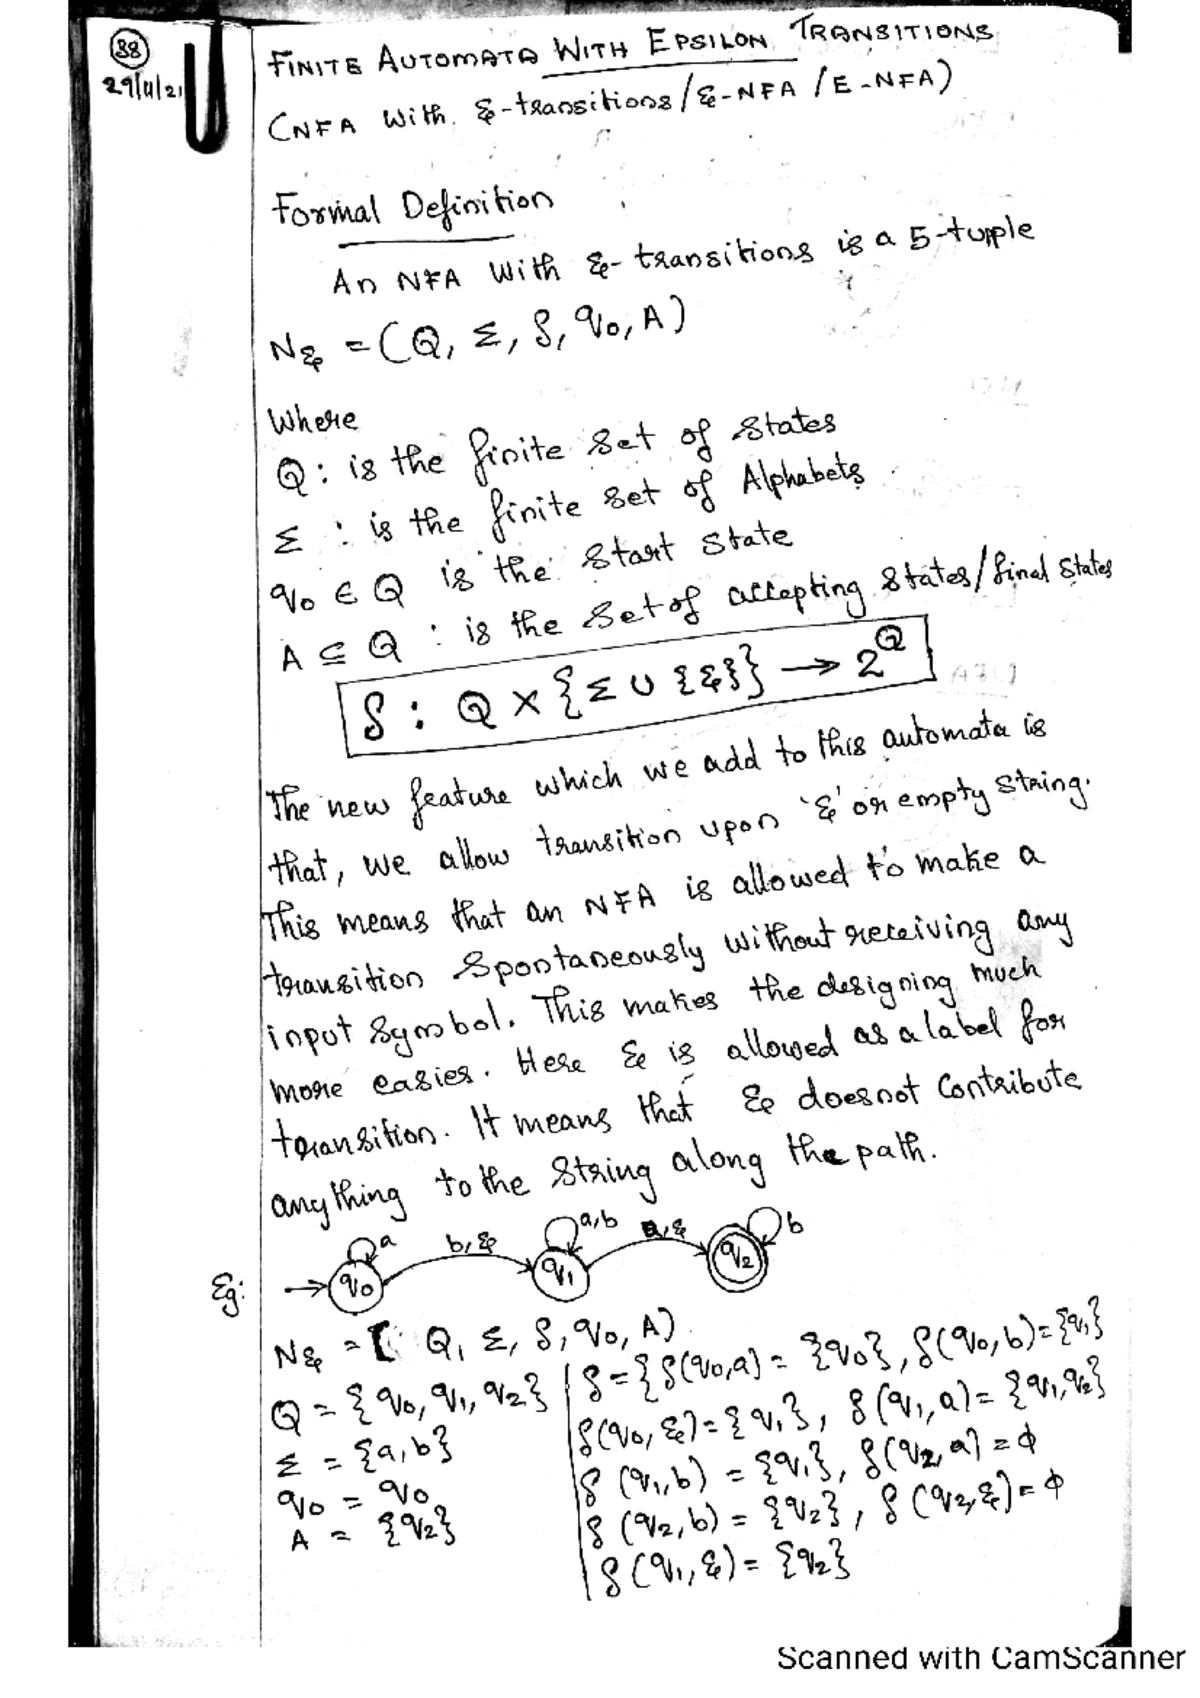 38
29/11/21
FINITE AUTOMATA WITH EPSILON TRANSITIONS
(NFA With ε-transitions/ε-NFA/E-NFA)
Formal Definition
An NFA With ε-transitions is a 5-tupple
Nε = (Q, Σ, δ, q0, A)
Where
Q: is the finite set of states
Σ : is the finite set of Alphabets
q0 ∈ Q is the start state
A ⊆ Q : is the set of accepting states/final states
δ : Q × {Σ ∪ {ε}} → 2^Q
The new feature which we add to this automata is
that, we allow transition upon 'ε' or empty string.
This means that an NFA is allowed to make a
transition spontaneously without receiving any
input symbol. This makes the designing much
more easies. Here ε is allowed as a label for
transition. It means that ε doesnot contribute
anything to the string along the path.
a b, ε a,b a,ε b
Eg: q0 q1 q2
Nε = ( Q, Σ, δ, q0, A)
Q = {q0, q1, q2}
Σ = {a,b}
q0 = q0
A = {q2}
δ = {δ(q0,a) = {q0}, δ(q0,b) = {q1}
δ(q0,ε) = {q1}, δ(q1,a) = {q1,q2}
δ(q1,b) = {q1}, δ(q2,a) = ϕ
δ(q2,b) = {q2}, δ(q2,ε) = ϕ
δ(q1,ε) = {q2}
Scanned with CamScanner